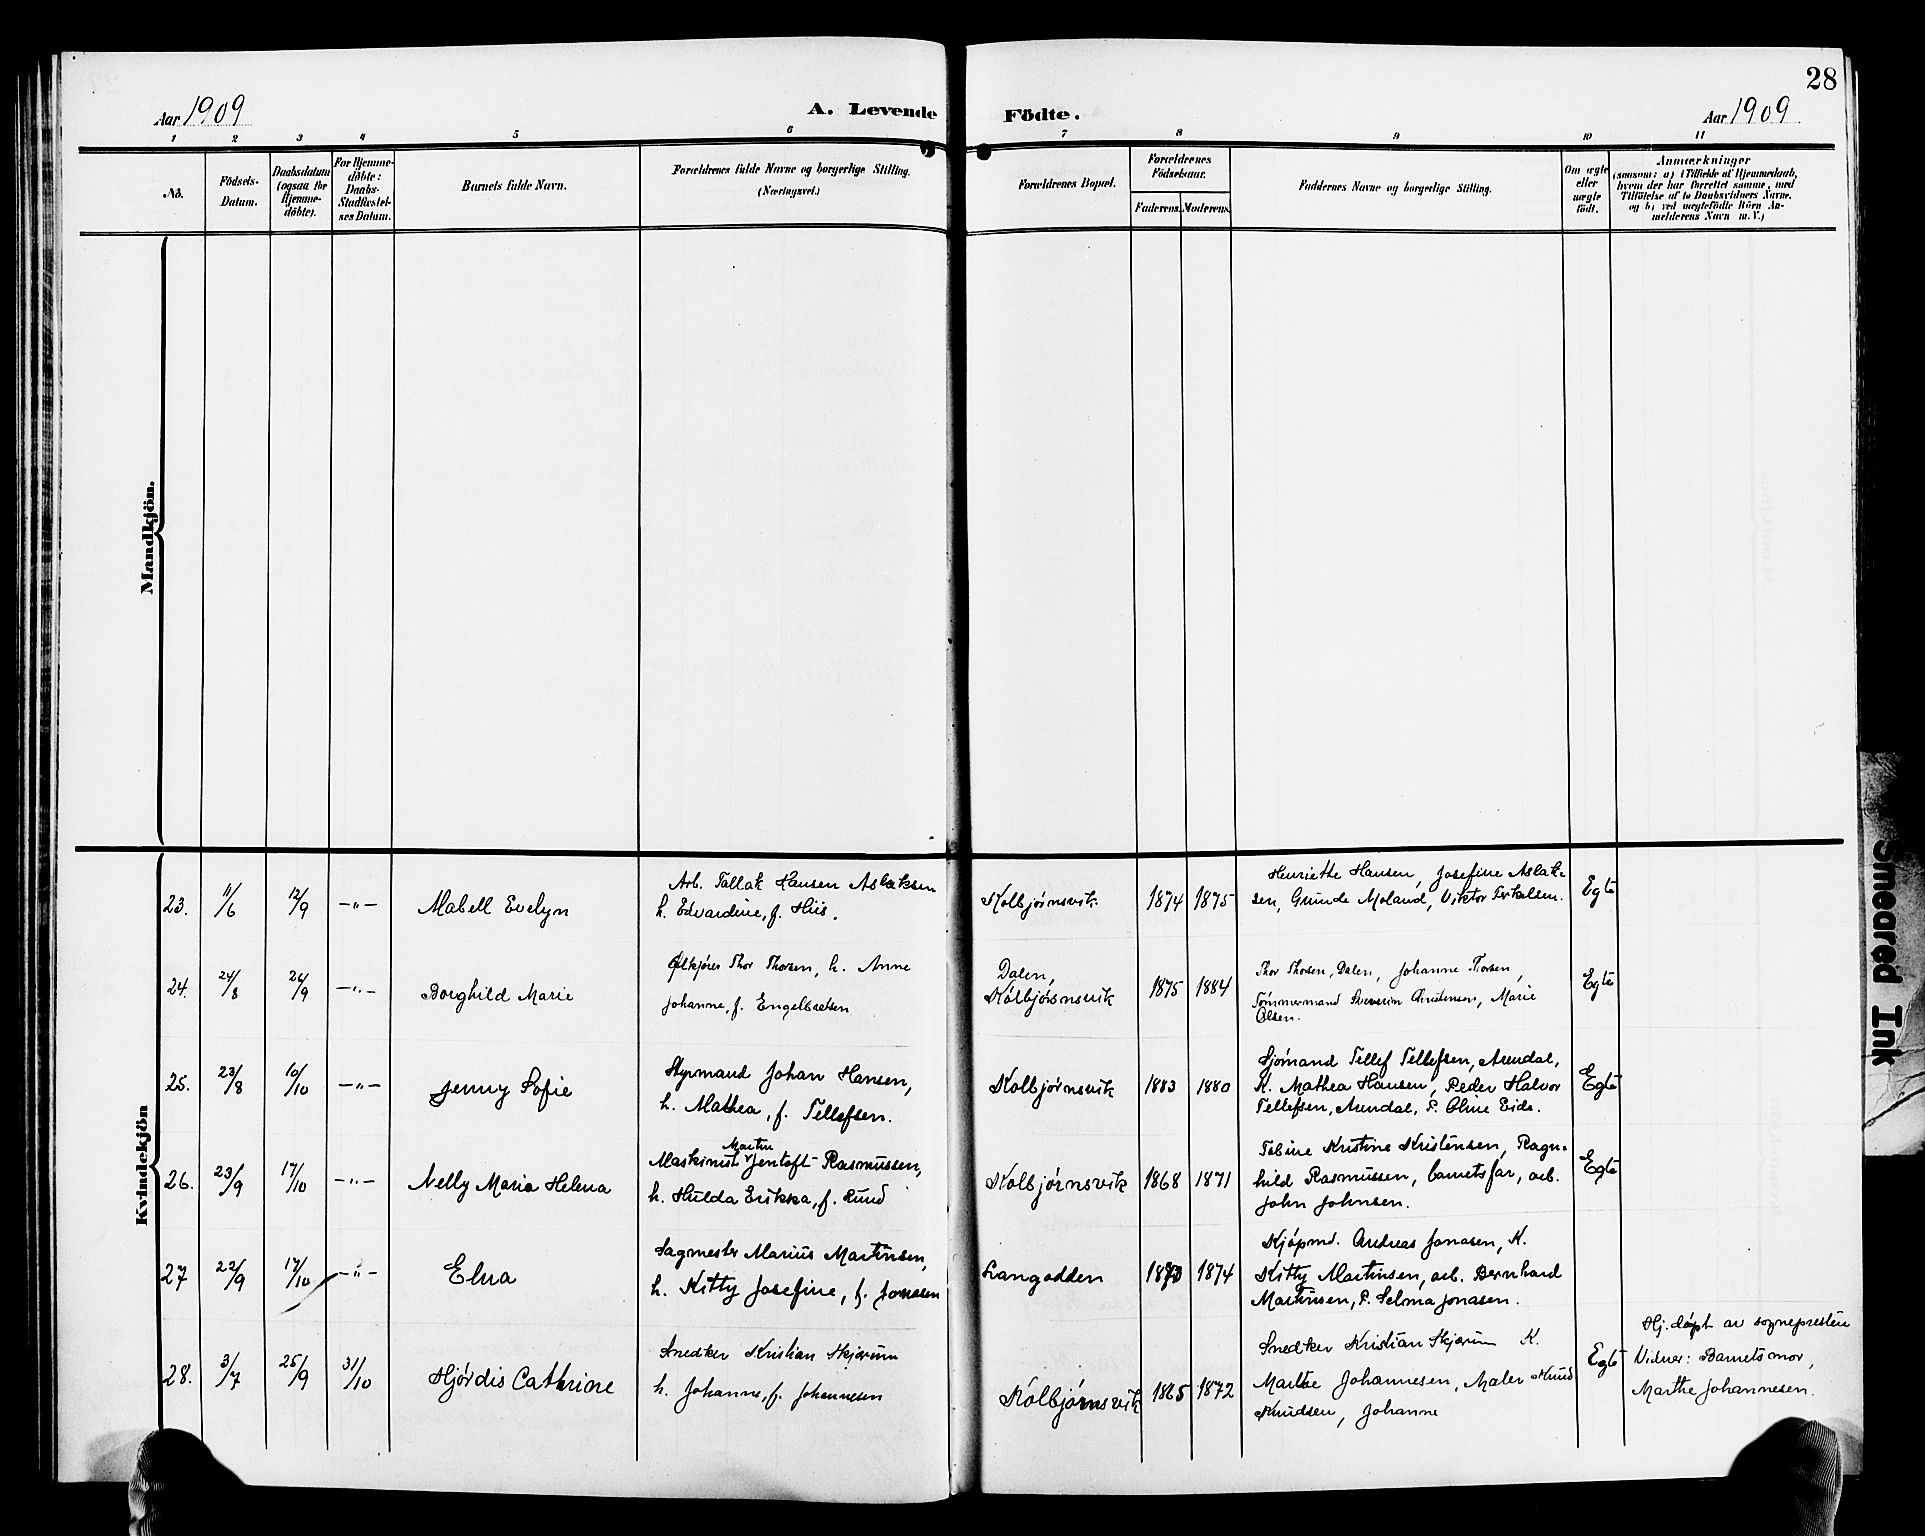 28
Aar 1909
A. Levende Födte.
Aar 1909
1 2 3 4 5 6 7 8 9 10 11
No.
Födsels-
Datum.
Daabsdatum
(ogsaa for
Hjemme-
döbte).
For Hjemme-
döbte:
Daabs-
Stadfæstel-
ses Datum.
Barnets fulde Navn.
Forældrenes fulde Navne og borgerlige Stilling.
(Næringsvei.)
Forældrenes Bopæl.
Forældrenes
Födselsaar.
Faderens.
Moderens.
Faddernes Navne og borgerlige Stilling.
Om ægte
eller
uægte
födt.
Anmærkninger
(saasom: a) i Tilfælde af Hjemmedaab,
hvem der har forrettet samme, med
Tilföielse af to Daabsvidners Navne.
og b) ved uægtefödte Börn An-
melderens Navn m. V.)
Mandkjön.
Kvindekjön
23. 11/6 12/9 —„— Mabell Evelyn
Arb. Tallak Hansen Aslaksen
h. Edvardine, f. Hiis.
Kolbjørnsvik 1874 1875
Henriette Hansen, Josefine Aslak-
sen, Gunde Moland, Viktor Terkelsen.
Egte
24. 24/8 26/9 —„— Borghild Marie
Ølkjører Thor Thorsen, h. Anne
Johanne, f. Engelbretsen
Dalen,
Kolbjørnsvik 1875 1884
Thor Thorsen, Dalen, Johanne Thorsen,
Tømmermand Severin Christensen, Marie
Olsen.
Egte
25. 23/8 10/10 —„— Jenny Sofie
Styrmand Johan Hansen,
h. Mathea, f. Tellefsen.
Kolbjørnsvik 1883 1880
Sjømand Tellef Tellefsen, Arendal,
K. Mathea Hansen, Peder Halvor
Tellefsen, Arendal, P. Oline Eide.
Egte
26. 23/9 17/10 —„— Nelly Marie Helena
Martin
Maskinist Jentoft Rasmussen,
h. Hulda Erikka, f. Lund
Kolbjørnsvik 1868 1871
Tobine Kristine Kristensen, Ragn-
hild Rasmussen, barnets far, arb.
John Johnsen.
Egte
27 22/9 17/10 —„— Elna
Sagmester Marius Martinsen,
h. Kitty Josefine, f. Jonasen
Langodden 1873 1874
Kjøpmd. Andreas Jonasen, K.
Kitty Martinsen, arb. Bernhard
Martinsen, P. Selma Jonasen.
28. 3/7 25/9 31/10 Hjørdis Cathrine
Snedker Kristian Skjærum
h. Johanne, f. Johannesen
Kolbjørnsvik 1865 1872
Snedker Kristian Skjærum K.
Marthe Johannesen, Maler Knud
Knudsen, Johanne
Egte
Hj. døpt av sognepresten
Vidner: Barnets mor,
Marthe Johannesen.
Smeared Ink